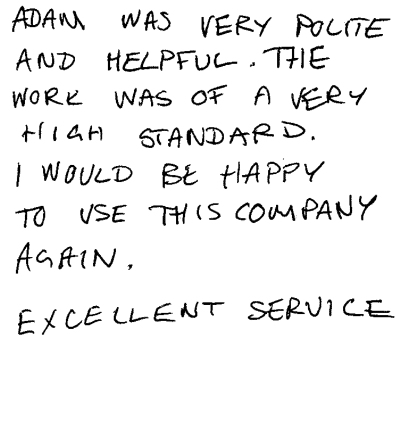 ADAM WAS VERY POLITE
AND HELPFUL. THE
WORK WAS OF A VERY
HIGH STANDARD.
I WOULD BE HAPPY
TO USE THIS COMPANY
AGAIN.
EXCELLENT SERVICE